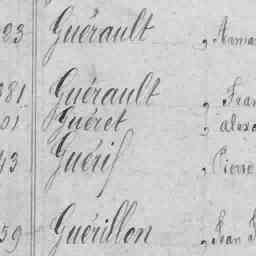 23 Guérault , Arman
381 Guérault , Fran
01 Guéret , alexa
43 Guérif , Pierre
59 Guérillon , Jean